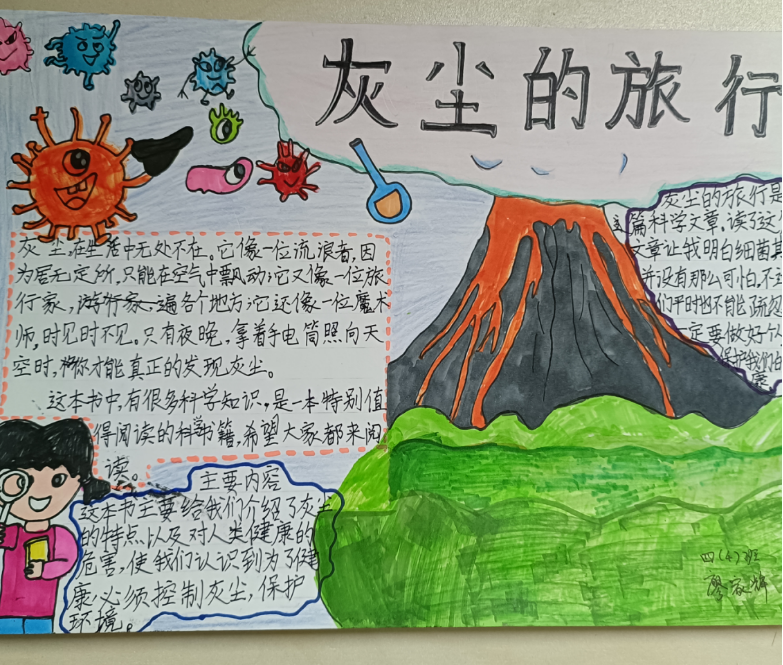 灰尘的旅行
灰尘,在生活中无处不在。它像一位流浪者,因
为居无定所,只能在空气中飘动;它又像一位旅
行家,遍各个地方;它还像一位魔术
师,时见时不见。只有夜晚,拿着手电筒照向天
空时,你才能真正的发现灰尘。
这本书中,有很多科学知识,是一本特别值
得阅读的科学书籍,希望大家都来阅
读。
主要内容
这本书主要给我们介绍了灰尘
的特点、以及对人类健康的
危害,使我们认识到为了健
康必须控制灰尘,保护
环境。
灰尘的旅行是
这篇科学文章,读了这
文章让我明白细菌其
并没有那么可怕,不
们平时也不能疏忽
一定要做好个
保护我们的
四(4)班